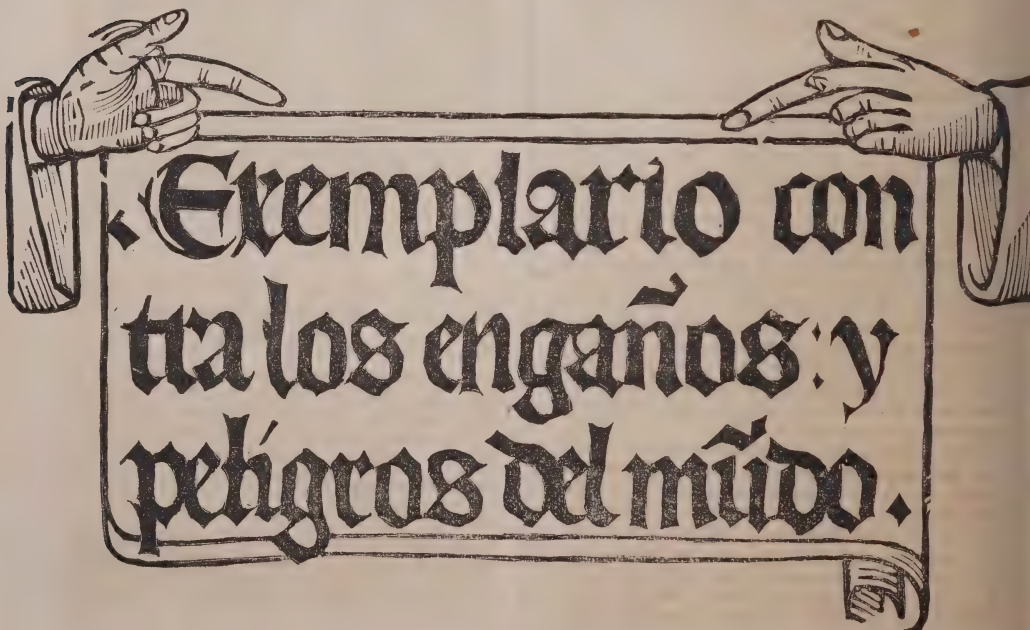 Exemplario con
tra los engaños: y
peligros del mũdo.